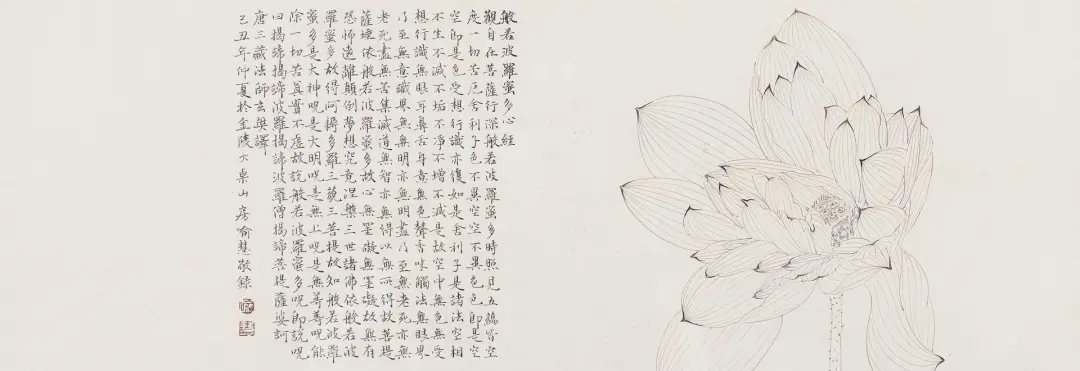 般若波羅蜜多心經
觀自在菩薩行深般若波羅蜜多時照見五蘊皆空
度一切苦厄舍利子色不異空空不異色色即是空
空即是色受想行識亦復如是舍利子是諸法空相
不生不滅不垢不淨不增不減是故空中無色無受
想行識無眼耳鼻舌身意無色聲香味觸法無眼界
乃至無意識界無無明亦無無明盡乃至無老死亦無
老死盡無苦集滅道無智亦無得以無所得故菩提
薩埵依般若波羅蜜多故心無罣礙無罣礙故無有
恐怖遠離顛倒夢想究竟涅槃三世諸佛依般若波
羅蜜多故得阿耨多羅三藐三菩提故知般若波羅
蜜多是大神咒是大明咒是無上咒是無等等咒能
除一切苦真實不虛故說般若波羅蜜多咒即說咒
曰揭諦揭諦波羅揭諦波羅僧揭諦菩提薩婆訶
唐三藏法師玄奘譯
己丑年仲夏於金陵山房喻慧敬録